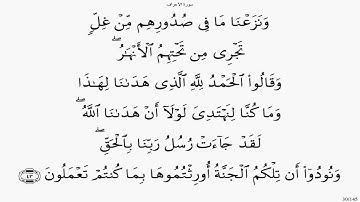 سورة الأعراف
وَنَزَعْنَا مَا فِى صُدُورِهِم مِّنْ غِلٍّۢ
تَجْرِى مِن تَحْتِهِمُ ٱلْأَنْهَـٰرُ ۖ
وَقَالُوا۟ ٱلْحَمْدُ لِلَّهِ ٱلَّذِى هَدَىٰنَا لِهَـٰذَا
وَمَا كُنَّا لِنَهْتَدِىَ لَوْلَآ أَنْ هَدَىٰنَا ٱللَّهُ ۖ
لَقَدْ جَآءَتْ رُسُلُ رَبِّنَا بِٱلْحَقِّ ۖ
وَنُودُوٓا۟ أَن تِلْكُمُ ٱلْجَنَّةُ أُورِثْتُمُوهَا بِمَا كُنتُمْ تَعْمَلُونَ ٤٣